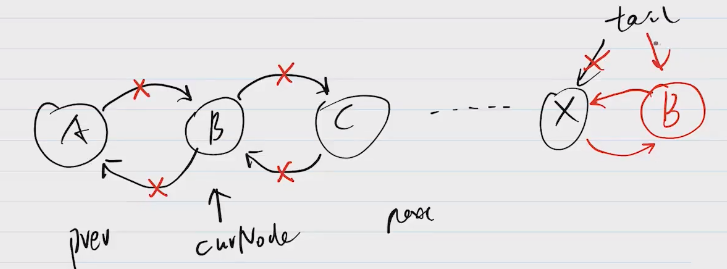 tail
A
B
C
X
B
prev
curNode